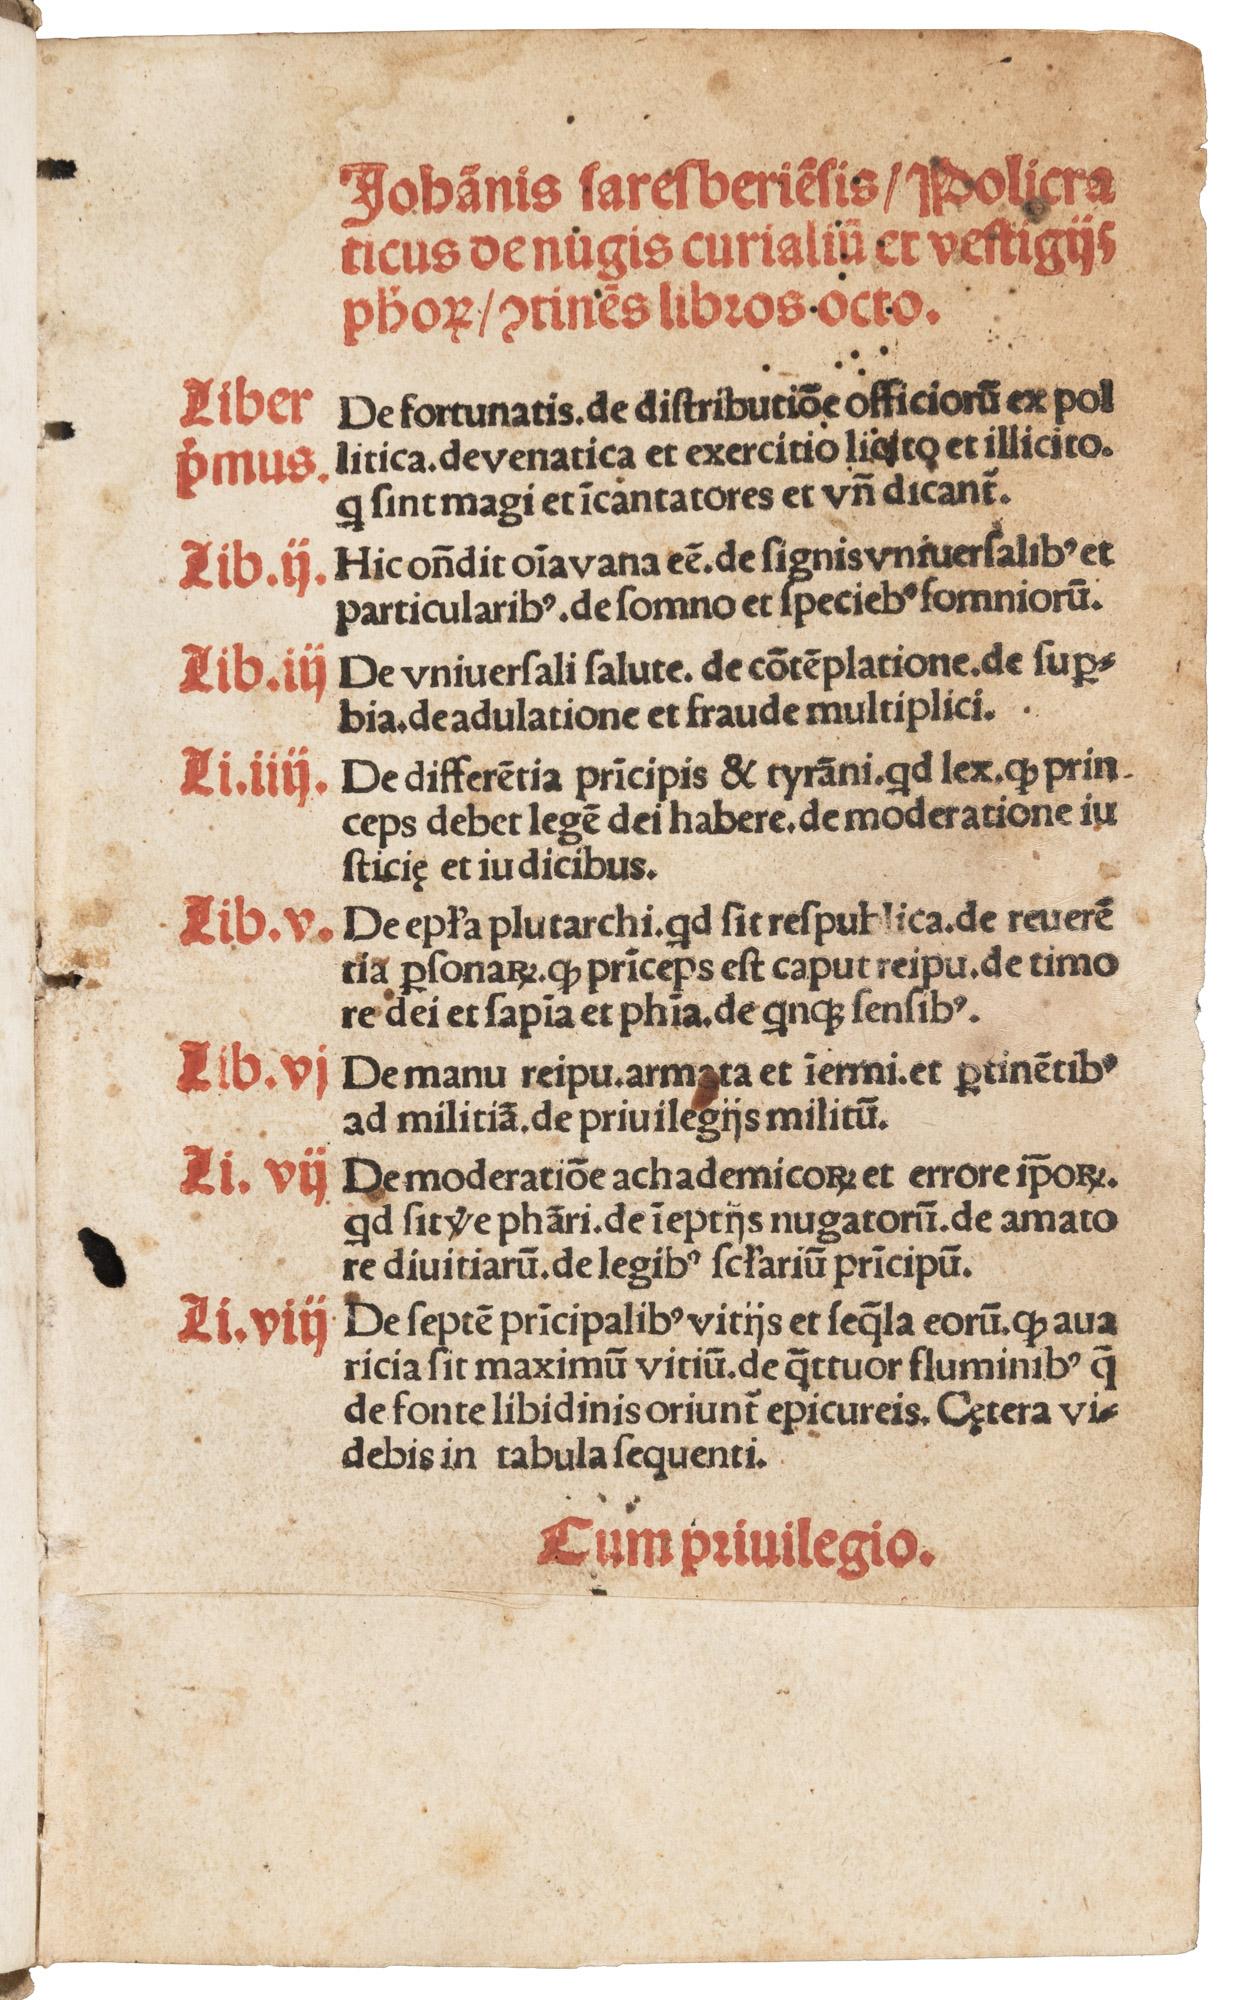 Johānis ſareſberiēſis / Policra
ticus de nugis curialiū et veſtigijs
ph̄oꝝ / ꝯtinēs libꝛos octo.
Liber p̄mus. De fortunatis. de diſtributiōe officiorū ex pol
litica. de venatica et exercitio licito et illicito.
q ſint magi et īcantatores et vn̄ dicant̄.
Lib. ij. Hic on̄dit oīa vana eē. de ſignis vniuerſalibꝰ et
particularibꝰ. de ſomno et ſpeciebꝰ ſomniorū.
Lib. iij De vniuerſali ſalute. de cōtēplatione. de ſuꝑ⸗
bia. de adulatione et fraude multiplici.
Li. iiij. De differētia prīcipis & tyrāni. qd lex. ꝙ prin
ceps debet legē dei habere. de moderatione iu
ſticię et iudicibus.
Lib. v. De epl̄a plutarchi. qd ſit reſpublica. de reuerē
tia ꝑſonaꝝ. ꝙ prīceps eſt caput reipu. de timo
re dei et ſapīa et phīa. de qnqꝫ ſenſibꝰ.
Lib. vj De manu reipu. armata et īermi. et ꝑtinētibꝰ
ad militiā. de priuilegijs militū.
Li. vij De moderatiōe achademicoꝝ et errore ip̄oꝝ.
qd ſit v̄e phāri. de īeptijs nugatorū. de amato
re diuitiarū. de legibꝰ ſcl̄ariū prīcipū.
Li. viij De ſeptē prīcipalibꝰ vitijs et ſeq̄la eorū. ꝙ aua
ricia ſit maximū vitiū. de q̄ttuor fluminibꝰ q̄
de fonte libidinis oriunt̄ epicureis. Cętera vi⸗
debis in tabula ſequenti.
Cum pꝛiuilegio.